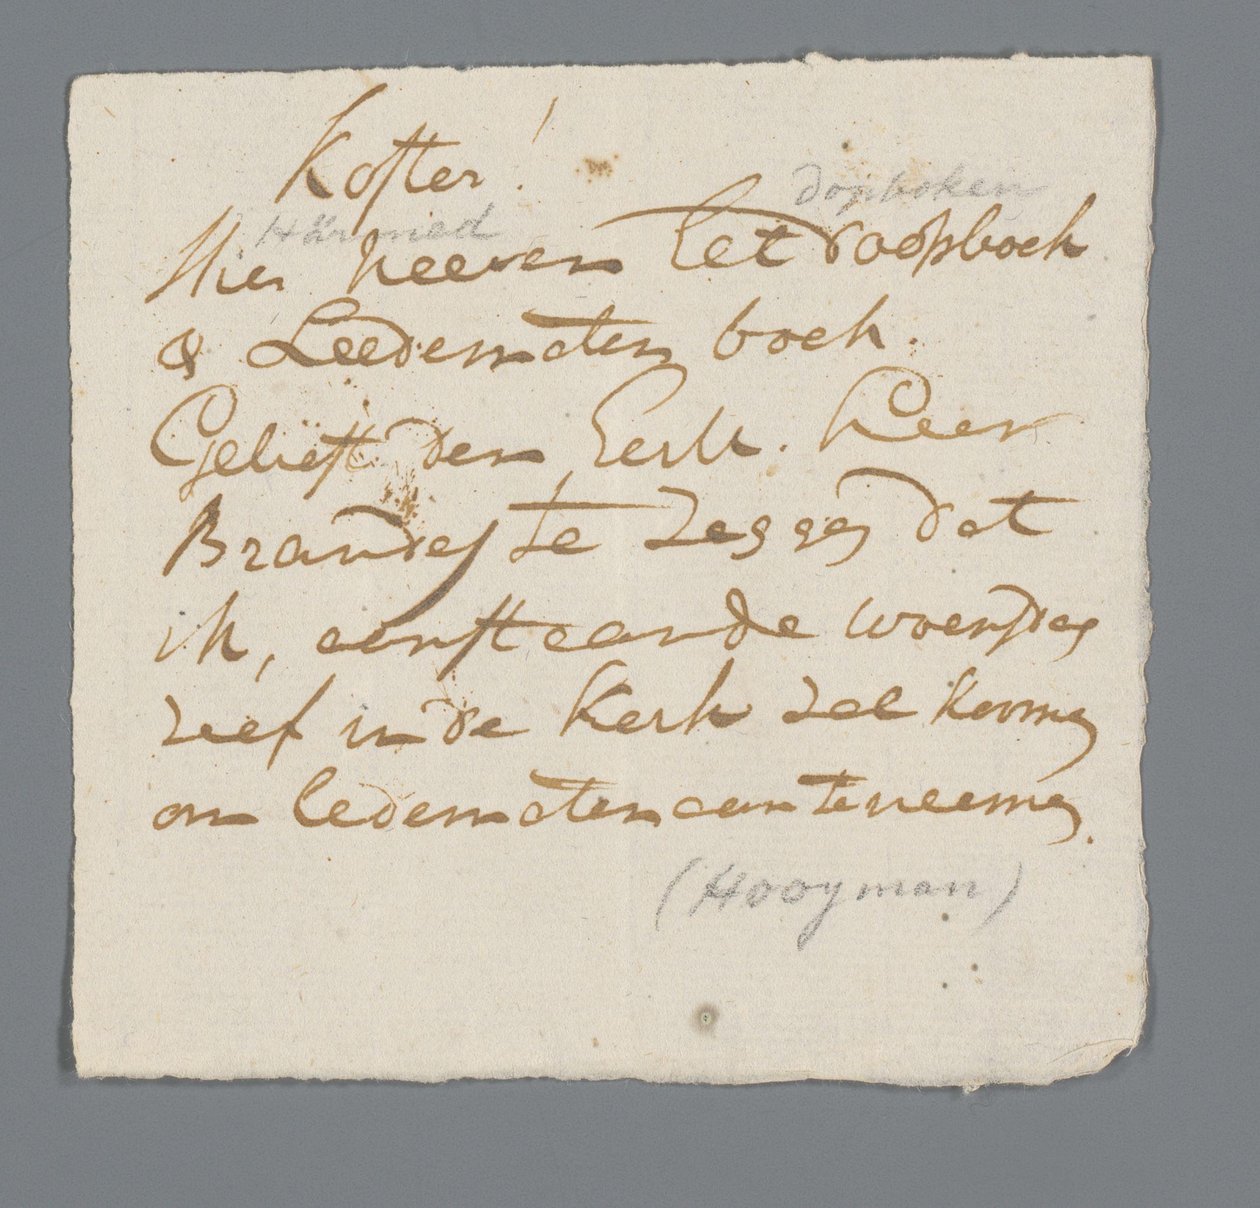 Koster!
Härmed dopboken
Hier neevens het doopboek
& Leedematen boek.
Gelieft den Eerw. Heer
Brandes te zeggen dat
ik, aanstaande woensdag
zelf in de Kerk zal koomen
om ledematen aanteneemen.
(Hooyman)